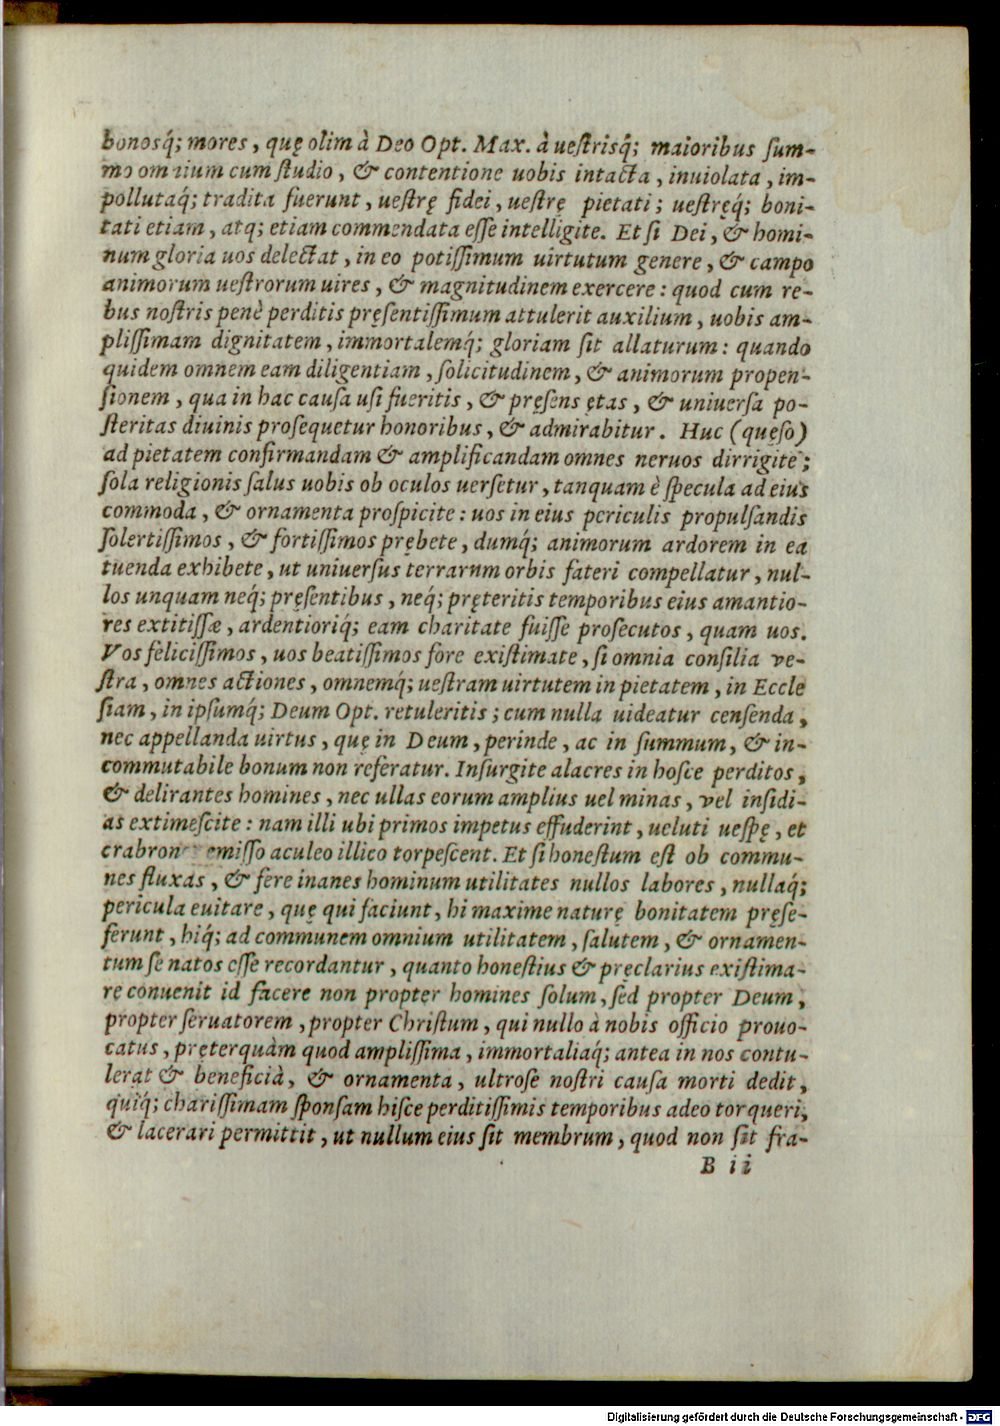 bonosq́; mores, quę olim à Deo Opt. Max. à ueſtrisq́; maioribus ſum-
mo omnium cum ſtudio, & contentione uobis intacta, inuiolata, im-
pollutaq́; tradita fuerunt, ueſtrę fidei, ueſtrę pietati; ueſtręq́; boni-
tati etiam, atq; etiam commendata eſſe intelligite. Et ſi Dei, & homi-
num gloria uos delectat, in eo potiſſimum uirtutum genere, & campo
animorum ueſtrorum uires, & magnitudinem exercere: quod cum re-
bus noſtris penè perditis pręſentiſſimum attulerit auxilium, uobis am-
pliſſimam dignitatem, immortalemq́; gloriam ſit allaturum: quando
quidem omnem eam diligentiam, ſolicitudinem, & animorum propen-
ſionem, qua in hac cauſa uſi fueritis, & pręſens ętas, & uniuerſa po-
ſteritas diuinis proſequetur honoribus, & admirabitur. Huc (quęſo)
ad pietatem confirmandam & amplificandam omnes neruos dirrigite;
ſola religionis ſalus uobis ob oculos uerſetur, tanquam è ſpecula ad eius
commoda, & ornamenta proſpicite: uos in eius periculis propulſandis
ſolertiſſimos, & fortiſſimos prębete, dumq́; animorum ardorem in ea
tuenda exhibete, ut uniuerſus terrarum orbis fateri compellatur, nul-
los unquam neq́; pręſentibus, neq́; pręteritis temporibus eius amantio-
res extitiſſæ, ardentioriq́; eam charitate fuiſſe proſecutos, quam uos.
Vos feliciſſimos, uos beatiſſimos fore exiſtimate, ſi omnia conſilia ve-
ſtra, omnes actiones, omnemq́; ueſtram uirtutem in pietatem, in Eccle
ſiam, in ipſumq́; Deum Opt. retuleritis; cum nulla uideatur cenſenda,
nec appellanda uirtus, quę in Deum, perinde, ac in ſummum, & in-
commutabile bonum non referatur. Inſurgite alacres in hoſce perditos,
& delirantes homines, nec ullas eorum amplius uel minas, vel inſidi-
as extimeſcite: nam illi ubi primos impetus effuderint, ueluti ueſpę, et
crabrones emiſſo aculeo illico torpeſcent. Et ſi honeſtum eſt ob commu-
nes fluxas, & fere inanes hominum utilitates nullos labores, nullaq́;
pericula euitare, quę qui faciunt, hi maxime naturę bonitatem pręſe-
ferunt, hiq́; ad communem omnium utilitatem, ſalutem, & ornamen-
tum ſe natos eſſe recordantur, quanto honeſtius & pręclarius exiſtima-
re conuenit id facere non propter homines ſolum, ſed propter Deum,
propter ſeruatorem, propter Chriſtum, qui nullo à nobis officio prouo-
catus, pręterquàm quod ampliſſima, immortaliaq́; antea in nos contu-
lerat & beneficià, & ornamenta, ultroſe noſtri cauſa morti dedit,
quiq́; chariſſimam ſponſam hiſce perditiſſimis temporibus adeo torqueri,
& lacerari permittit, ut nullum eius ſit membrum, quod non ſit fra-
B ii
Digitalisierung gefördert durch die Deutsche Forschungsgemeinschaft - DFG